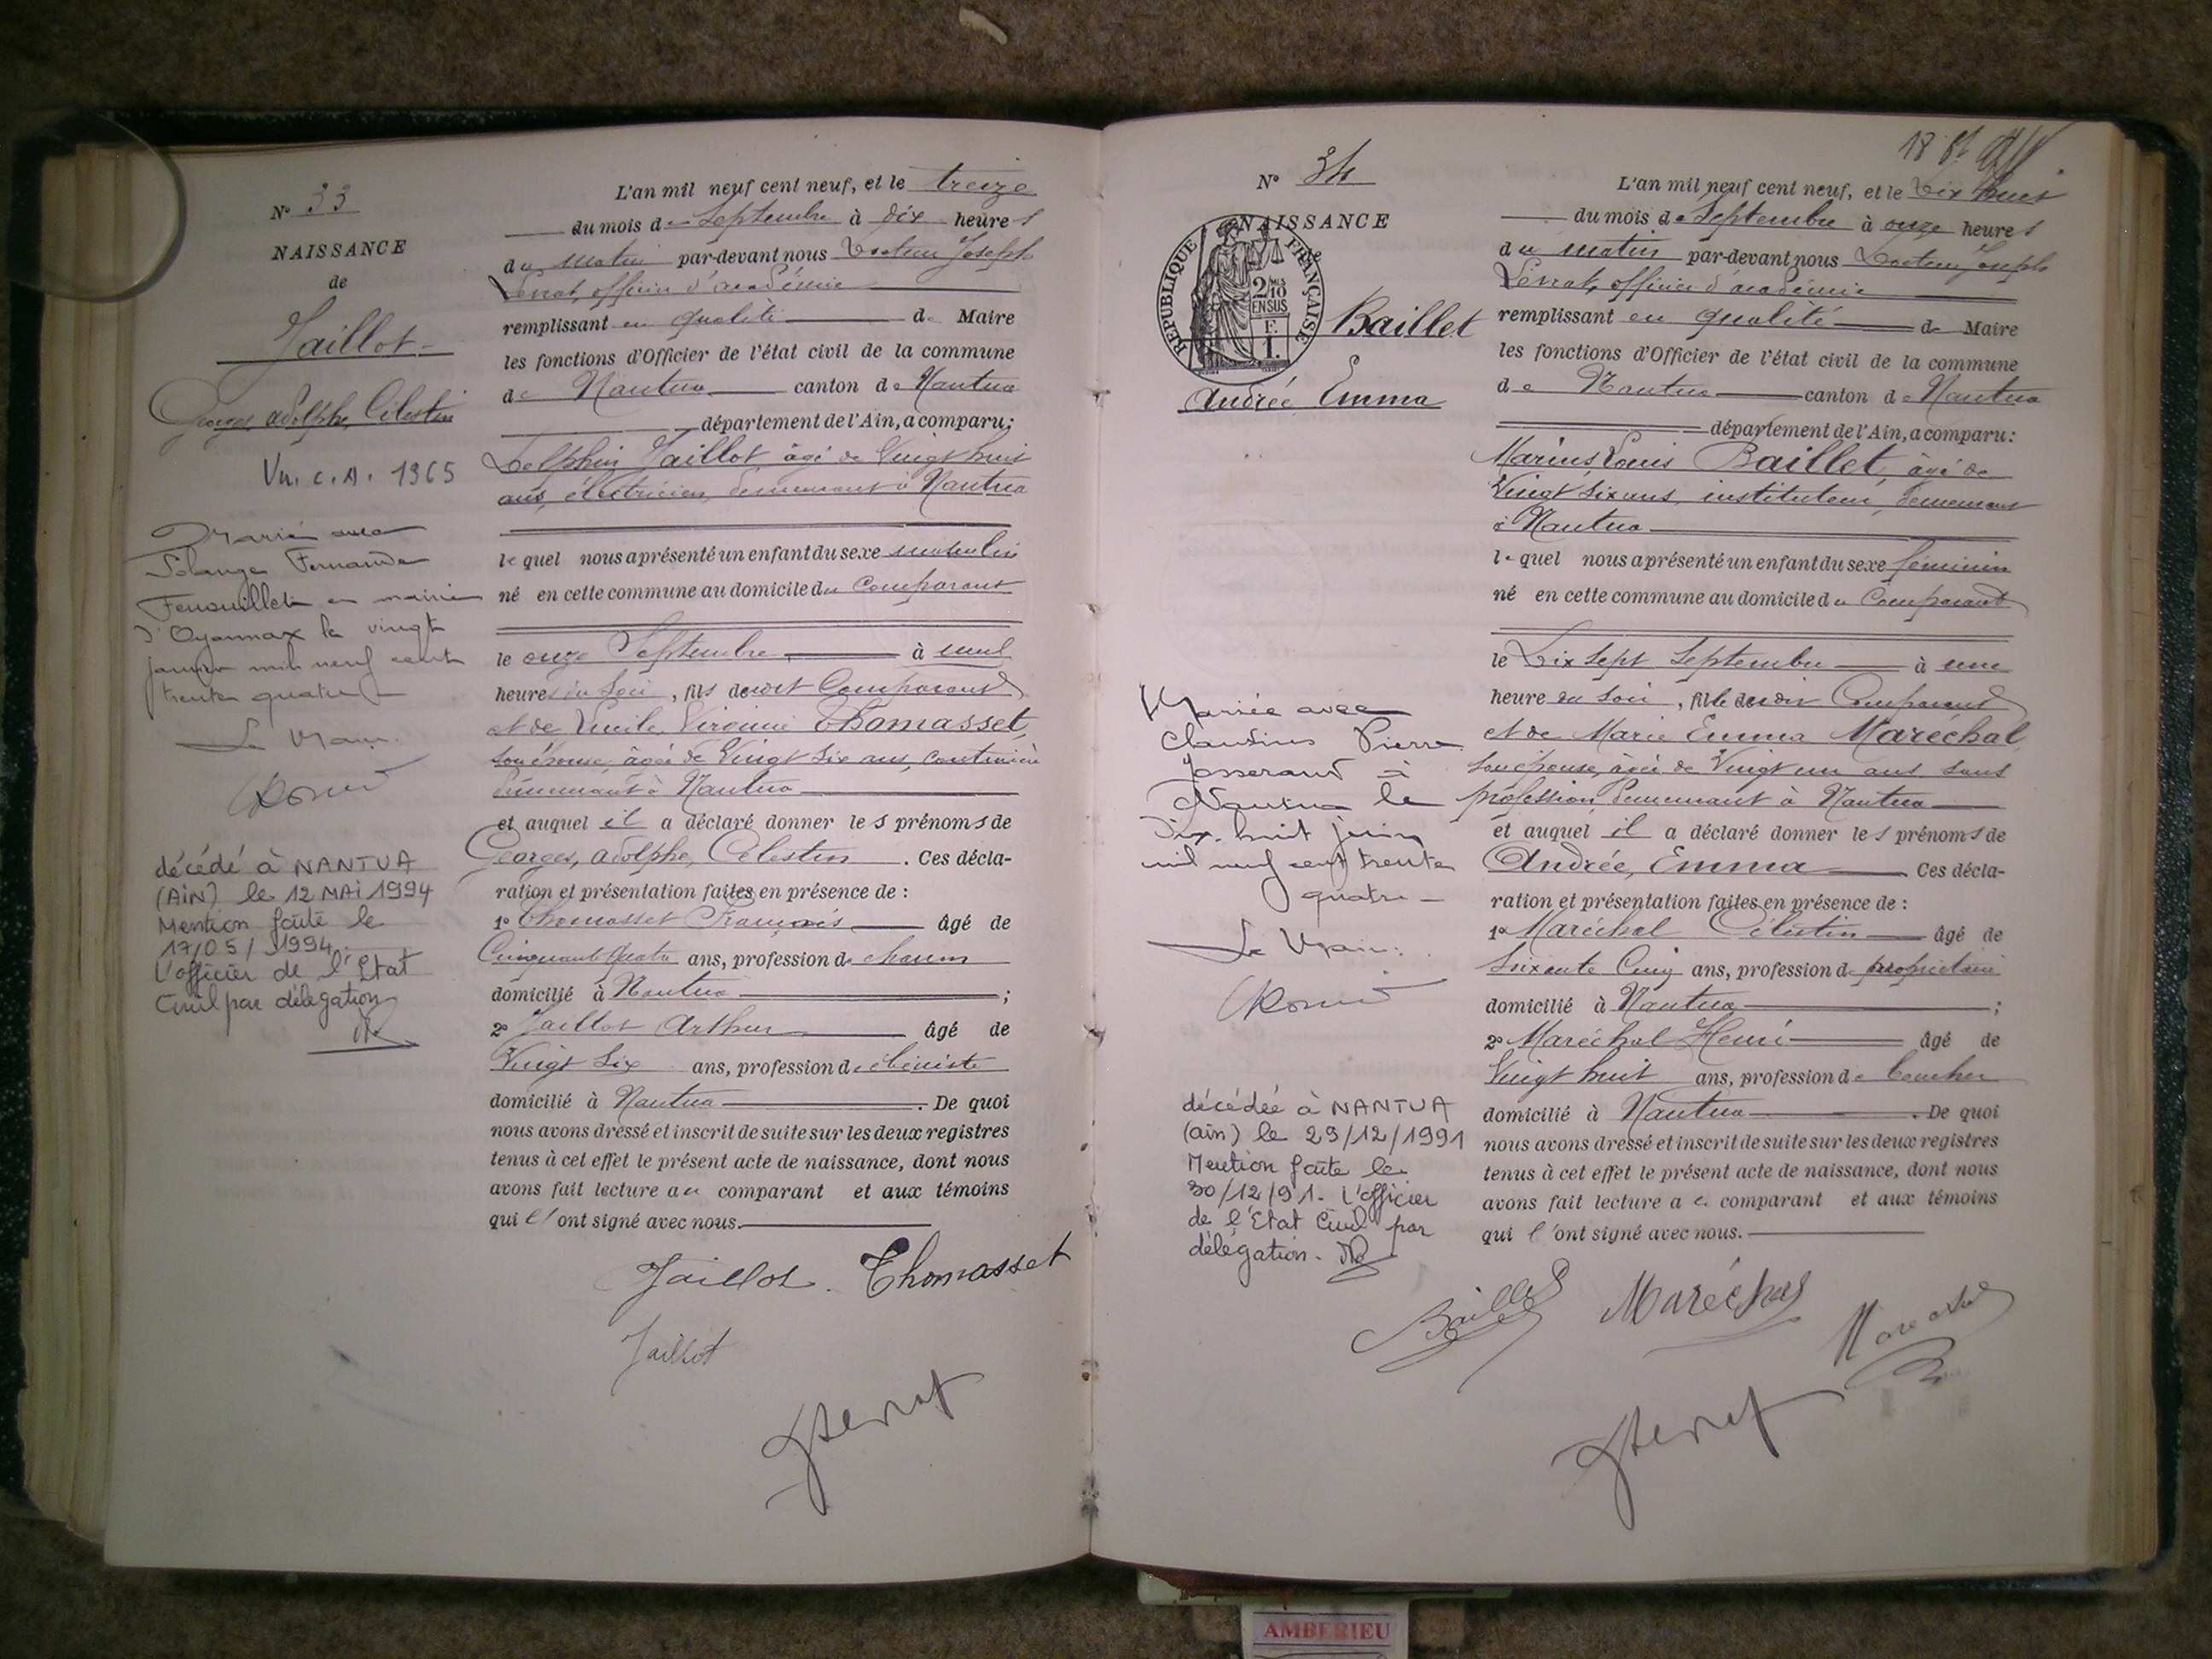 N° 33
NAISSANCE
de
Jaillot
Georges, Adolphe, Célestin
Vu. C.A. 1965
Marié avec
Solange Fernande
Fenouillet en mairie
d'Oyonnax le vingt
janvier mil neuf cent
trente quatre
Le Maire
décédé à NANTUA
(AIN) le 12 MAI 1994
Mention faite le
17/05/1994.
L'officier de l'Etat
Civil par délégation
L'an mil neuf cent neuf, et le treize
du mois de Septembre à dix heures
du matin par-devant nous Docteur Joseph
officier d'académie
remplissant en qualité de Maire
les fonctions d'Officier de l'état civil de la commune
de Nantua canton de Nantua
département de l'Ain, a comparu:
Delphin Jaillot âgé de Vingt huit
ans, électricien, demeurant à Nantua
lequel nous a présenté un enfant du sexe masculin
né en cette commune au domicile du Comparant
le onze Septembre à neuf
heures du Soir, fils dudit Comparant
et de Lucile, Virginie Thomasset,
son épouse, âgée de Vingt Six ans, couturière
demeurant à Nantua
et auquel il a déclaré donner les prénoms de
Georges, Adolphe, Célestin. Ces décla-
ration et présentation faites en présence de :
1° Thomasset François âgé de
Cinquante Quatre ans, profession de
domicilié à Nantua ;
2° Jaillot Arthur âgé de
Vingt Six ans, profession d'ébéniste
domicilié à Nantua. De quoi
nous avons dressé et inscrit de suite sur les deux registres
tenus à cet effet le présent acte de naissance, dont nous
avons fait lecture au comparant et aux témoins
qui l'ont signé avec nous.
Jaillot. Thomasset
Jaillot
N° 34
NAISSANCE
RÉPUBLIQUE FRANÇAISE
2/10
EN SUS
Baillet
Andrée Emma
Mariée avec
Claudius Pierre
Josserand à
Nantua le
dix-huit juin
mil neuf cent trente
quatre
Le Maire
décédée à NANTUA
(ain) le 29/12/1991
Mention faite le
30/12/91. L'officier
de l'Etat Civil par
délégation.
18
L'an mil neuf cent neuf, et le Dix huit
du mois de Septembre à onze heures
du matin par-devant nous Docteur Joseph
officier d'académie
remplissant en qualité de Maire
les fonctions d'Officier de l'état civil de la commune
de Nantua canton de Nantua
département de l'Ain, a comparu:
Marius, Louis Baillet, âgé de
Vingt Six ans, instituteur, demeurant
à Nantua
lequel nous a présenté un enfant du sexe féminin
né en cette commune au domicile du Comparant
le Dix Sept Septembre à une
heure du Soir, fille dudit Comparant
et de Marie Emma Maréchal
son épouse, âgée de Vingt un ans, sans
profession, demeurant à Nantua
et auquel il a déclaré donner les prénoms de
Andrée, Emma Ces décla-
ration et présentation faites en présence de :
1° Maréchal Célestin âgé de
Soixante Cinq ans, profession de propriétaire
domicilié à Nantua ;
2° Maréchal Henri âgé de
Vingt huit ans, profession de boucher
domicilié à Nantua. De quoi
nous avons dressé et inscrit de suite sur les deux registres
tenus à cet effet le présent acte de naissance, dont nous
avons fait lecture au comparant et aux témoins
qui l'ont signé avec nous.
Baillet Maréchal Marechal
AMBERIEU